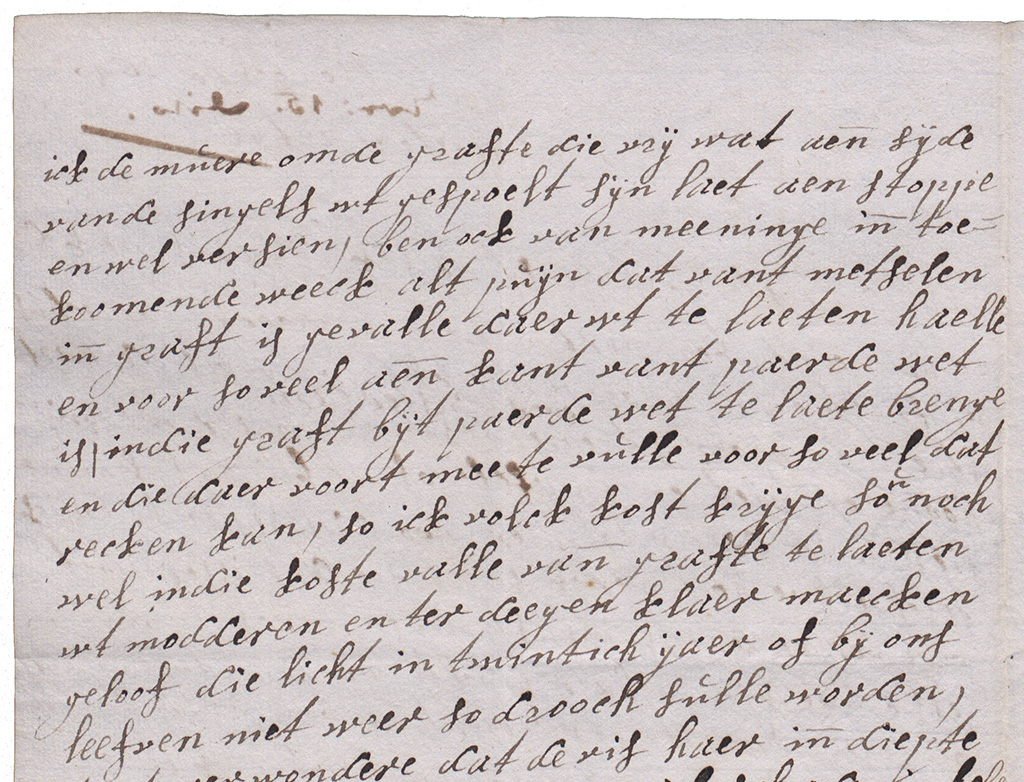 ick de muere omde grafte die vrij wat aen sijde
vande singels wt gespoelt sijn laet aen stoppe
en wel versien, ben ock van meeninge in toe=
koomende weeck alt puijn dat vant metselen
in graft is gevalle daer wt te laeten haelle
en voor so veel aen kant vant paerde wet
is, indie graft bijt paerde wet te laete brenge
en die daer voort mee te vulle voor so veel dat
recken kan, so ick volck kost krijge sou noch
wel indie koste valle van grafte te laeten
wt modderen en ter deegen klaer maecken
geloof die licht in twintich ijaer of bij ons
leefven niet weer so drooch sulle worden,
verwondere dat de vis haer in diepte